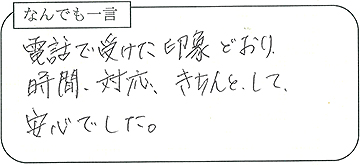 なんでも一言
電話で受けた印象どおり、
時間、対応、きちんとして、
安心でした。